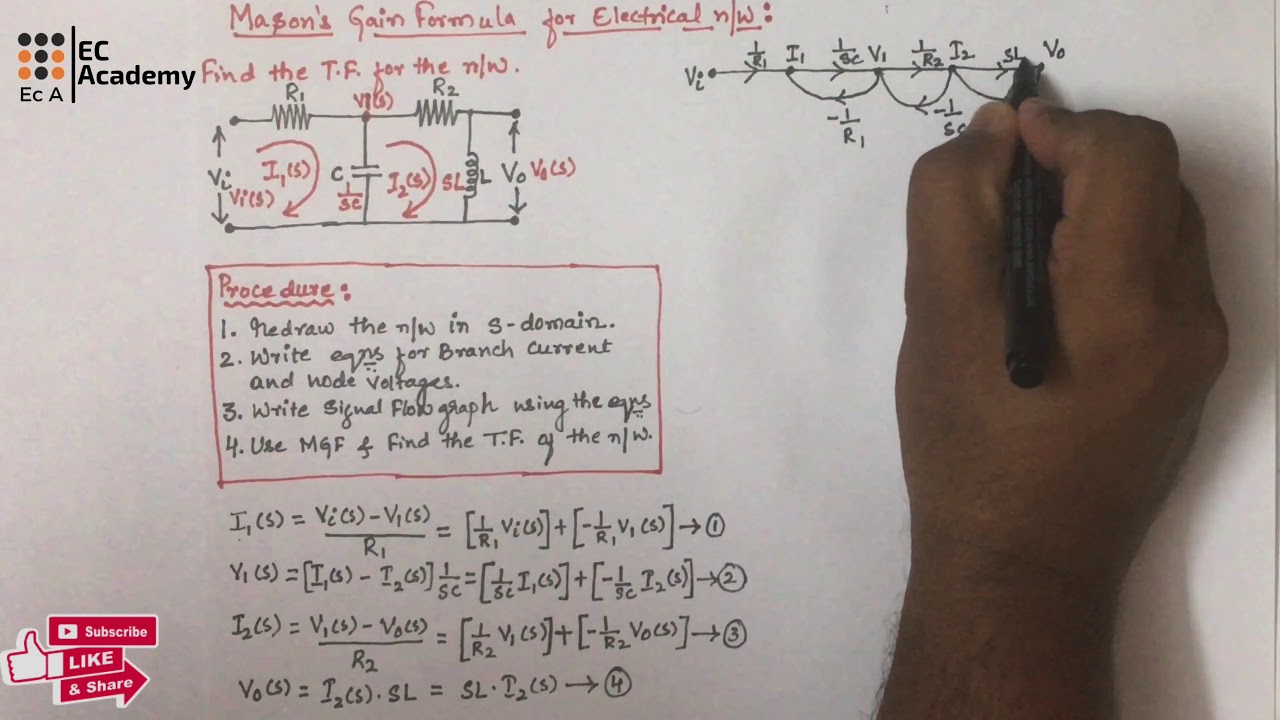 Mason's Gain Formula for Electrical n/w:
EC
Academy
Ec A
Find the T.F. for the n/w.
R1
V1(s)
R2
Vi
Vi(s)
I1(s)
C
1/SC
I2(s)
SL
L
Vo
Vo(s)
Vi
1/R1
I1
1/SC
V1
1/R2
I2
SL
Vo
-1/R1
-1/SC
Procedure:
1. Redraw the n/w in S-domain.
2. Write eqns for Branch current
and node voltages.
3. Write Signal Flow graph using the eqns
4. Use MGF & Find the T.F. of the n/w.
I1(s) = Vi(s) - V1(s)/R1 = [1/R1 Vi(s)] + [-1/R1 V1(s)] → ①
V1(s) = [I1(s) - I2(s)] 1/SC = [1/SC I1(s)] + [-1/SC I2(s)] → ②
I2(s) = V1(s) - Vo(s)/R2 = [1/R2 V1(s)] + [-1/R2 Vo(s)] → ③
Vo(s) = I2(s) · SL = SL · I2(s) → ④
Subscribe
LIKE
& Share